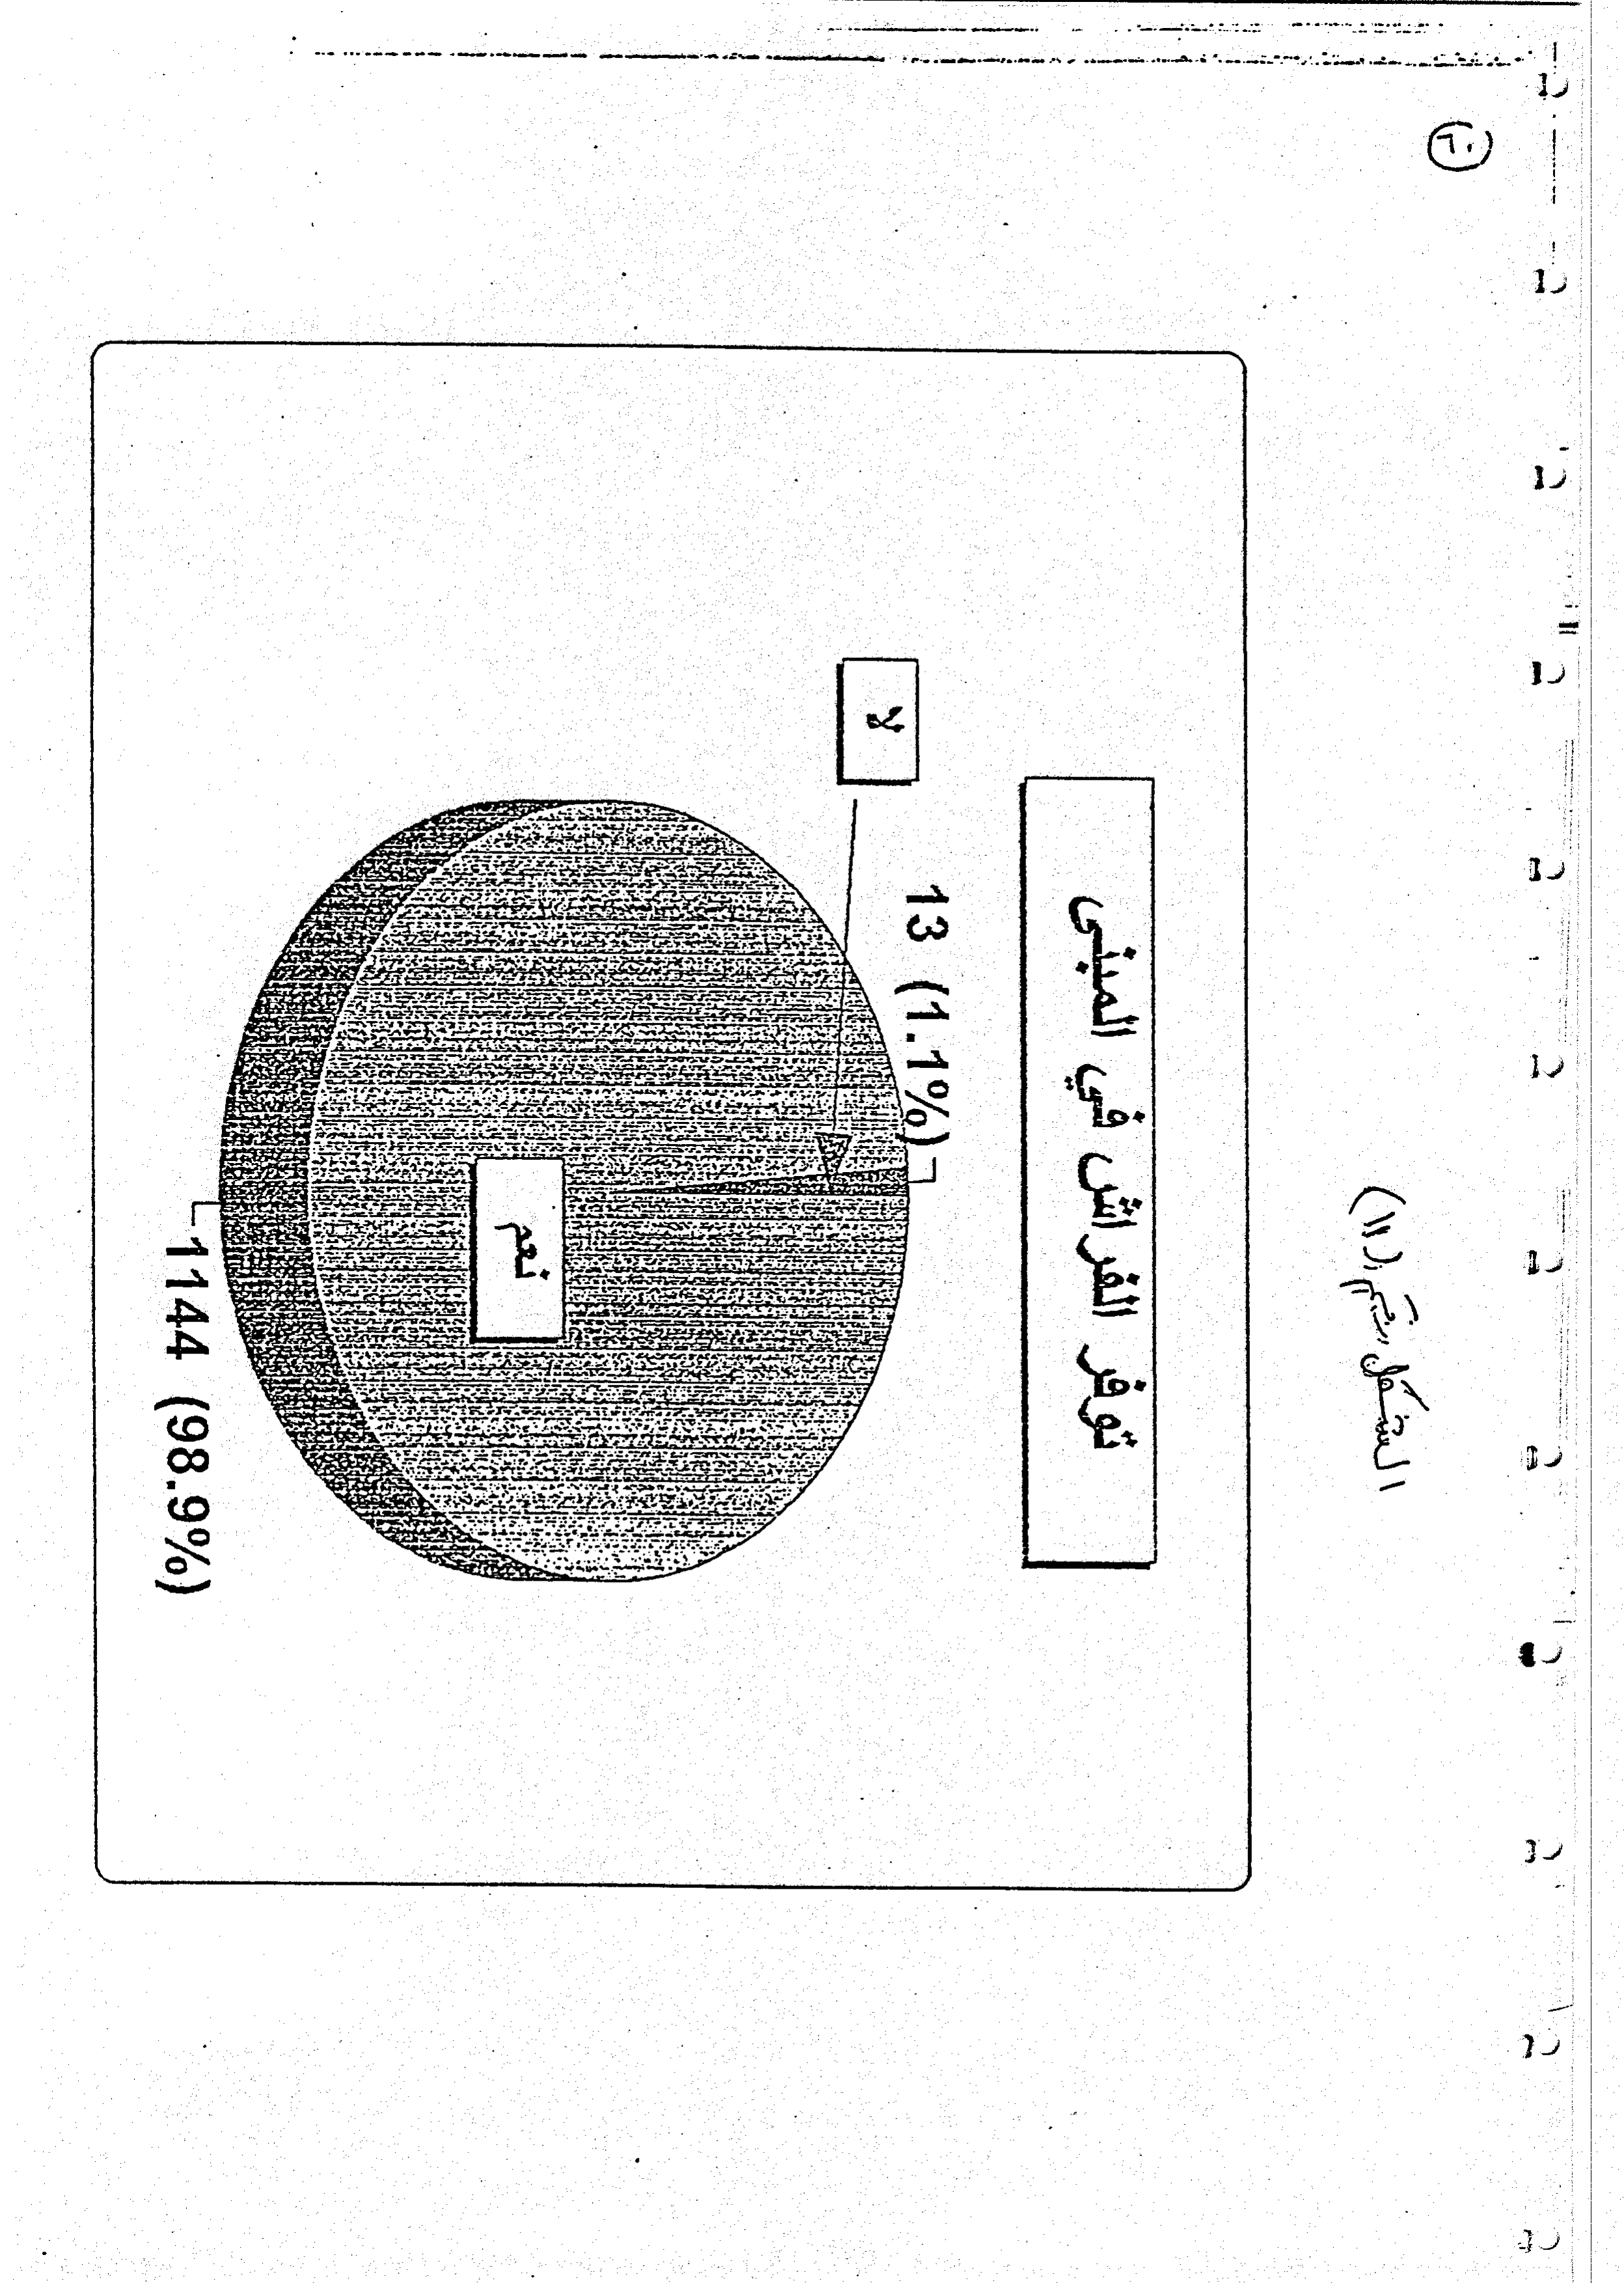 ٦٠
الشكل رقم (١١)
توفر الفراش في المبنى
لا
13 (1.1%)
نعم
1144 (98.9%)